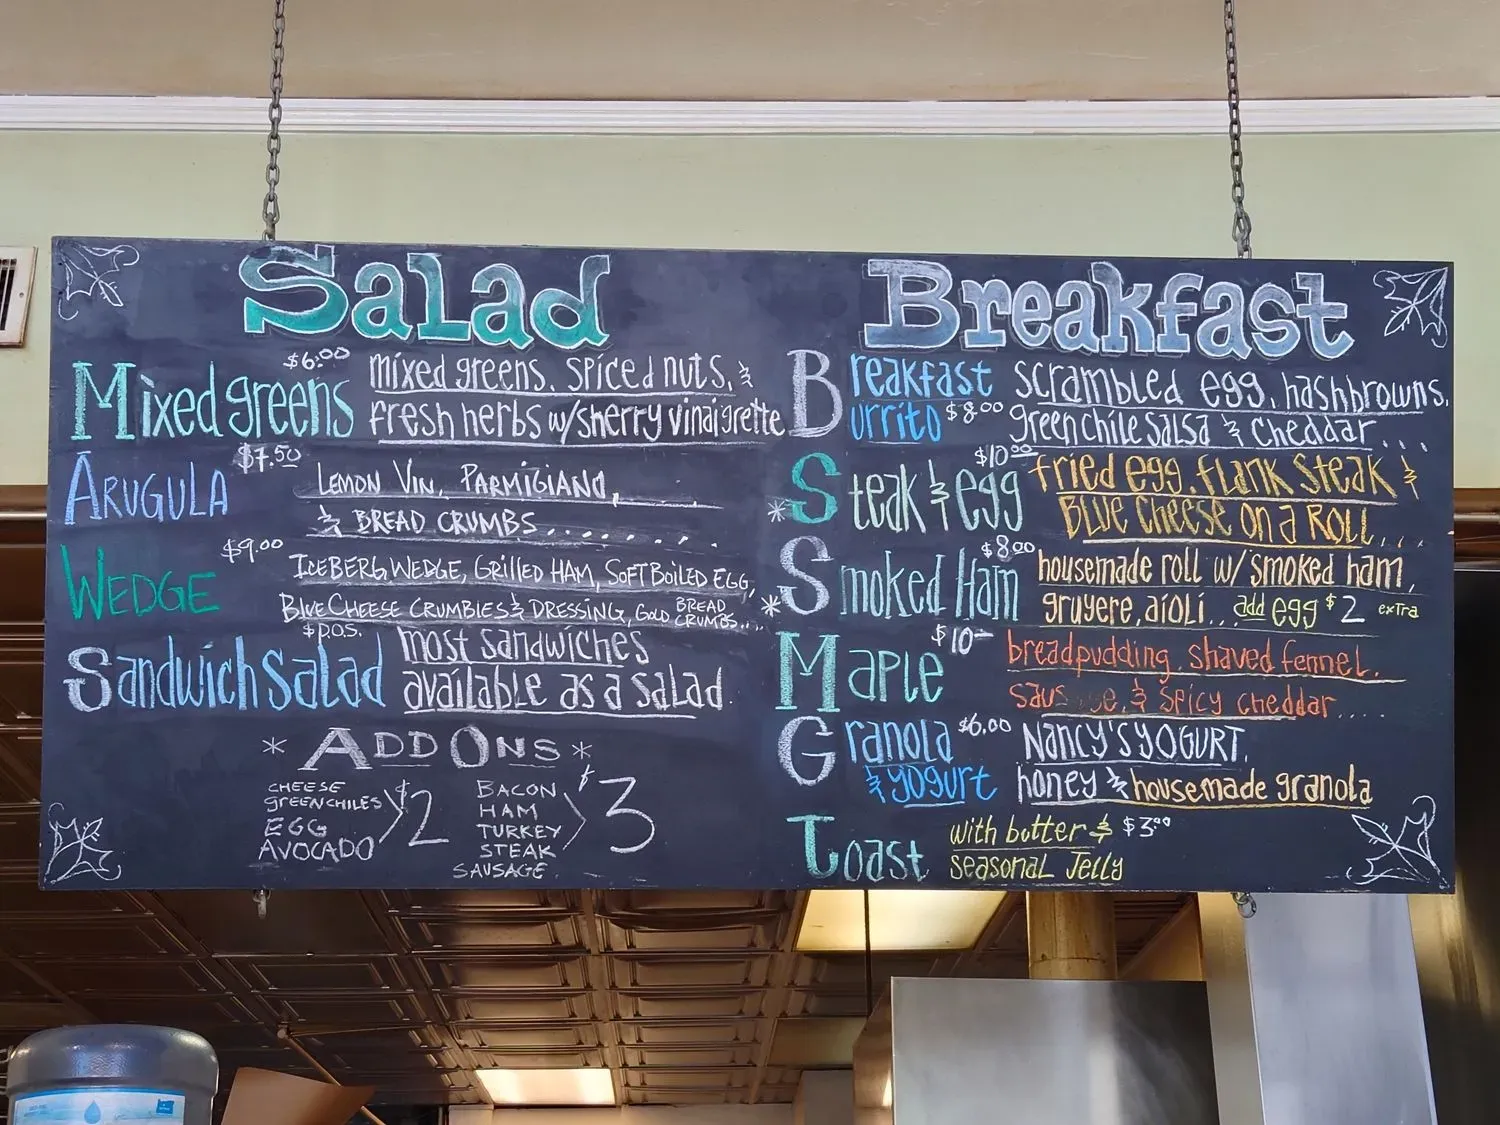 Salad
Mixed greens $6.00 mixed greens, spiced nuts, &
fresh herbs w/sherry vinaigrette
ARUGULA $7.50 LEMON VIN, PARMIGIANO,
& BREAD CRUMBS........
WEDGE $9.00 ICEBERG WEDGE, GRILLED HAM, SOFT BOILED EGG,
BLUE CHEESE CRUMBLES & DRESSING, GOLD BREAD CRUMBS....
Sandwich Salad $ POS. most sandwiches
available as a salad.
* ADD ONS *
CHEESE
GREEN CHILES
EGG
AVOCADO
$2
BACON
HAM
TURKEY
STEAK
SAUSAGE
$3
Breakfast
Breakfast Burrito $8.00 scrambled egg, hashbrowns,
green chile salsa & cheddar...
* Steak & egg $10.00 fried egg, flank steak &
BLUE CHEESE on a ROLL...
* Smoked Ham $8.00 housemade roll w/ smoked ham,
gruyere, aioli... add egg $2 extra
MAPLE $10- bread pudding, shaved fennel,
& spicy cheddar....
Granola & yogurt $6.00 NANCY'S YOGURT,
honey & housemade granola
Toast with butter & $3.00
seasonal Jelly